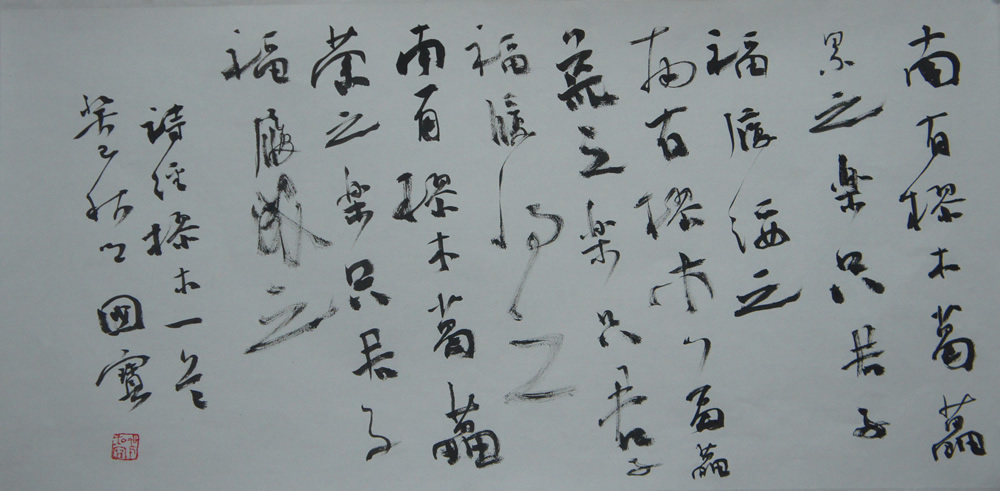 南有樛木葛藟
累之楽只君子
福履綏之
南有樛木葛藟
荒之楽只君子
福履将之
南有樛木葛藟
萦之楽只君子
福履成之
詩經樛木一首
癸巳秋日國寶